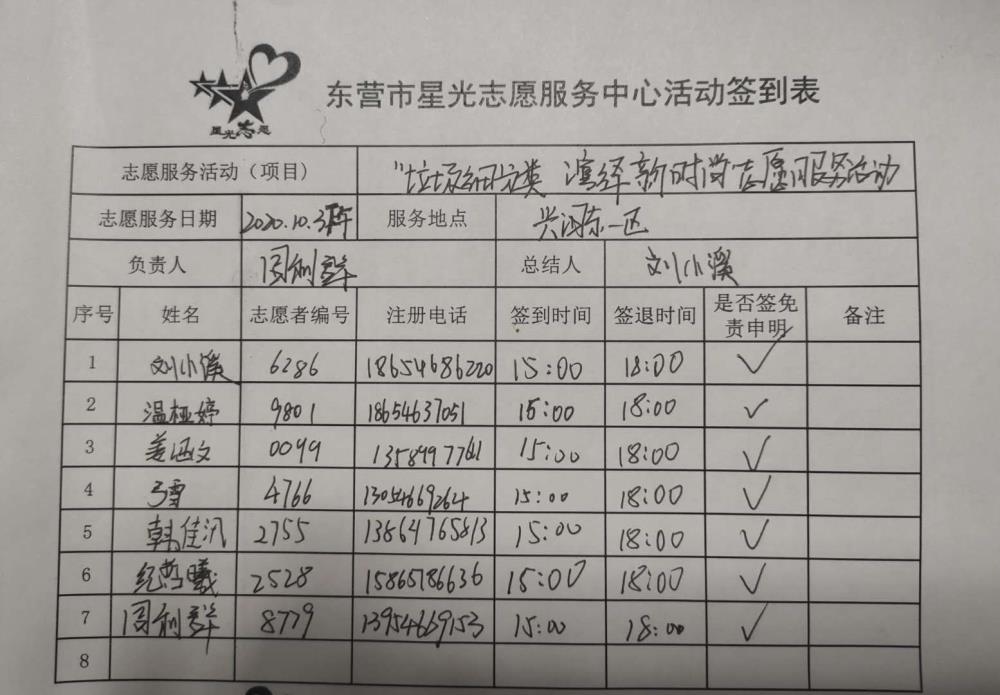 星光志愿
东营市星光志愿服务中心活动签到表
志愿服务活动（项目） "垃圾细分类 演绎新时尚志愿服务活动
志愿服务日期 2020.10.3 服务地点 兴河东一区
负责人 周利群 总结人 刘小溪
序号 姓名 志愿者编号 注册电话 签到时间 签退时间 是否签免责申明 备注
1 刘小溪 6286 18654686220 15:00 18:00 ✓
2 温桠婷 9801 18654637051 15:00 18:00 ✓
3 姜涵文 0099 15:00 18:00 ✓
4 弓雪 4766 13054669264 15:00 18:00 ✓
5 韩佳汛 2755 13864765813 15:00 18:00 ✓
6 纪哲曦 2528 15865786636 15:00 18:00 ✓
7 周利群 8779 13954669153 15:00 18:00 ✓
8